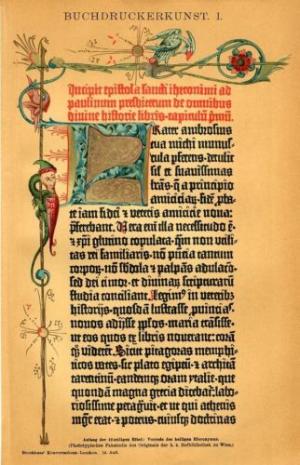 BUCHDRUCKERKUNST. I.
Incipit epistola sancti iheronimi ad
paulinum presbiterum de omnibus
diuine historie libris. capitulū p̄mū.
Frater ambrosius
tua michi munus-
cula pferens. detulit
sil̄ et suauissimas
lr̄as. q̄ a principio
amiciciaꝝ. fidē pba-
te iam fidei ⁊ veteris amicicie noua:
pferebant. Vera eni illa necessitudo ē.
⁊ xp̄i glutino copulata. q̄m non vtili-
tas rei familiaris. nō p̄ntia tantum
corpoꝝ. nō sb̄dola ⁊ palpās adulacō.
sed dei timor. et diuinaꝝ scripturaꝝ
studia conciliant. Legim⁹ in veterib⁊
historijs. quosdā lustrasse ꝓuīcias.
nouos adijsse pp̄los. maria trāsisse.
ut eos quos ex libris nouerant: corā
q̄ viderēt. Sicut pitagoras memphi-
ticos vates. sic plato egiptū et architā
tarentinū. eandemq̄ oram ytalie. que
quondā magna grecia dicebat̄: labo-
riosissime peragᷓuit. et ut qui athenis
mgr̄ erat. ⁊ potens. cuiusq̄ doctrinas
Anfang der 42zeiligen Bibel: Vorrede des heiligen Hieronymus.
(Phototypisches Faksimile des Originals der k. k. Hofbibliothek zu Wien.)
Brockhaus' Konversations-Lexikon. 14. Aufl.